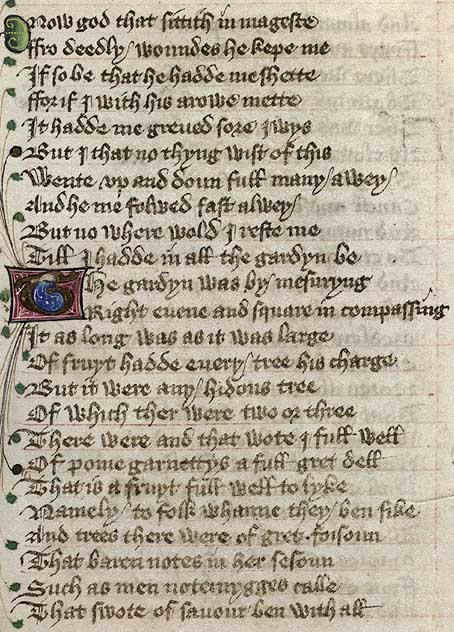 Now god that sittith in mageste
ffro deedly woundes he kepe me
If so be that he hadde me shette
ffor if I with his arowe mette
It hadde me greued sore Iwys
But I that no thyng wist of this
Wente vp and doun full many a wey
And he me folwed fast alwey
But no where wold I reste me
Till I hadde in all the gardyn be
The gardyn was by mesuryng
Right euene and square in compassing
It as long was as it was large
Of fruyt hadde euery tree his charge
But it were any hidous tree
Of which ther were two or three
There were and that wote I full well
Of pome garnettys a full gret dell
That is a fruyt full well to lyke
Namely to folk whanne they ben sike
And trees there were of gret foisoun
That baren notes in her sesoun
Such as men notemygges calle
That swote of sauour ben withall